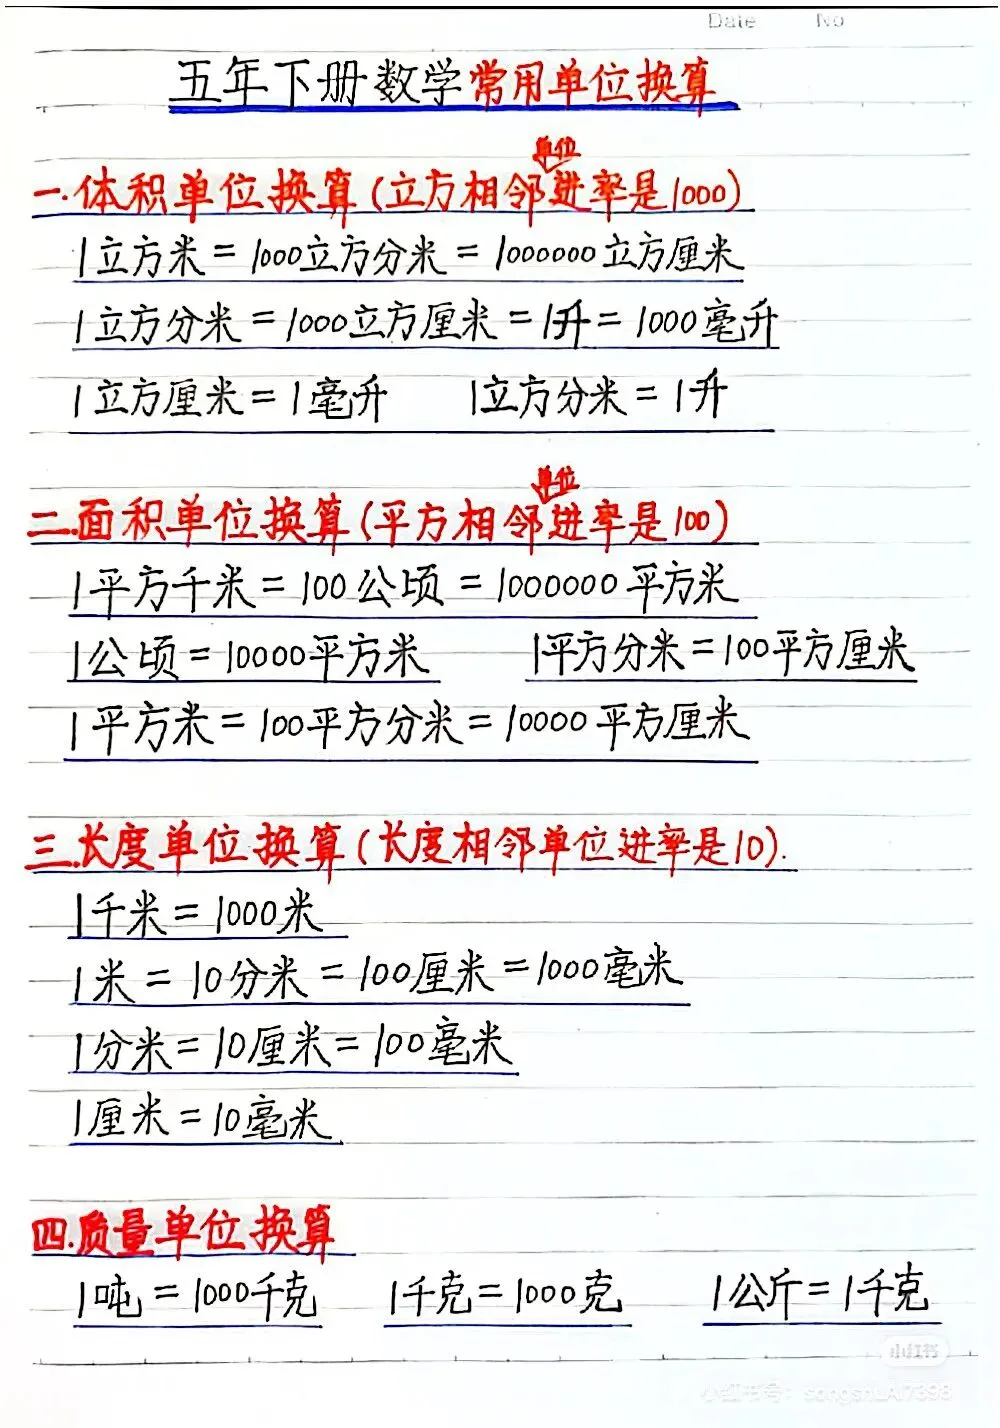 Date No
五年下册数学常用单位换算
单位
一.体积单位换算(立方相邻进率是1000)
1立方米=1000立方分米=1000000立方厘米
1立方分米=1000立方厘米=1升=1000毫升
1立方厘米=1毫升 1立方分米=1升
单位
二.面积单位换算(平方相邻进率是100)
1平方千米=100公顷=1000000平方米
1公顷=10000平方米 1平方分米=100平方厘米
1平方米=100平方分米=10000平方厘米
三.长度单位换算(长度相邻单位进率是10).
1千米=1000米
1米=10分米=100厘米=1000毫米
1分米=10厘米=100毫米
1厘米=10毫米
四.质量单位换算
1吨=1000千克 1千克=1000克 1公斤=1千克
小红书